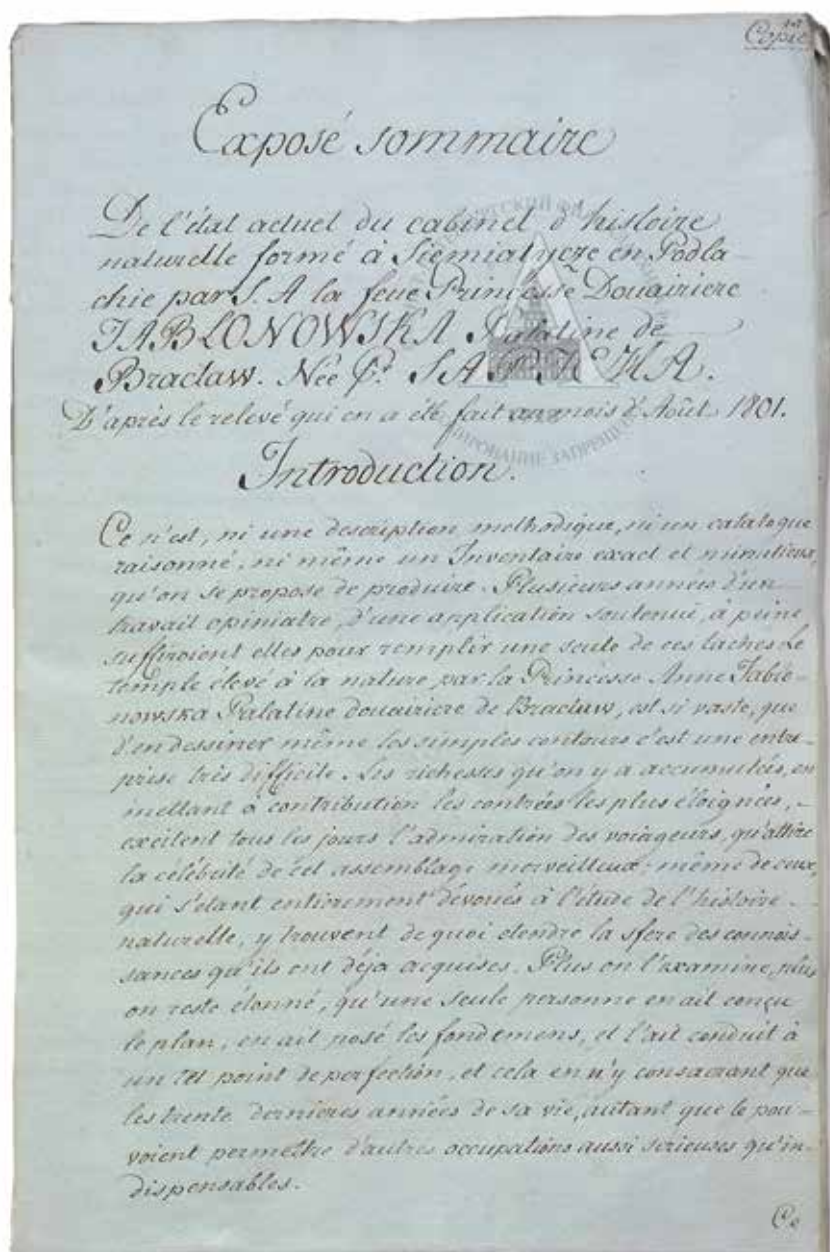 Copie
Exposé sommaire
De l'état actuel du cabinet d'histoire
naturelle formé à Siemiatycze en Podla-
chie par S. A la feue Princesse Douairiere
JABLONOWSKA Palatine de
Braclaw. Née Pss. SAPIEHA.
D'après le relevé qui en a été fait au mois d'Août 1801.
Introduction.
Ce n'est, ni une description methodique, ni un catalogue
raisonné, ni même un Inventaire exact et minutieux,
qu'on se propose de produire. Plusieurs années d'un
travail opiniatre, d'une application soutenue, à peine
suffiroient elles pour remplir une seule de ces taches. Le
temple élevé à la nature par la Princesse Anne Jablo-
nowska Palatine douairiere de Braclaw, est si vaste, que
d'en dessiner même les simples contours c'est une entre-
prise très difficile. Les richesses qu'on y a accumulées, en
mettant à contribution les contrées les plus éloignées,
excitent tous les jours l'admiration des voiageurs, qu'attire
la célébrité de cet assemblage merveilleux; même de ceux,
qui s'étant entierement dévoués à l'étude de l'histoire
naturelle, y trouvent de quoi etendre la sfere des connois-
sances qu'ils ont déja acquises. Plus on l'examine, plus
on reste étonné, qu'une seule personne en ait conçu
le plan, en ait posé les fondemens, et l'ait conduit à
un tel point de perfection, et cela en n'y consacrant que
les trente dernieres années de sa vie, autant que le pou-
voient permettre d'autres occupations aussi serieuses qu'in-
dispensables.
Ce